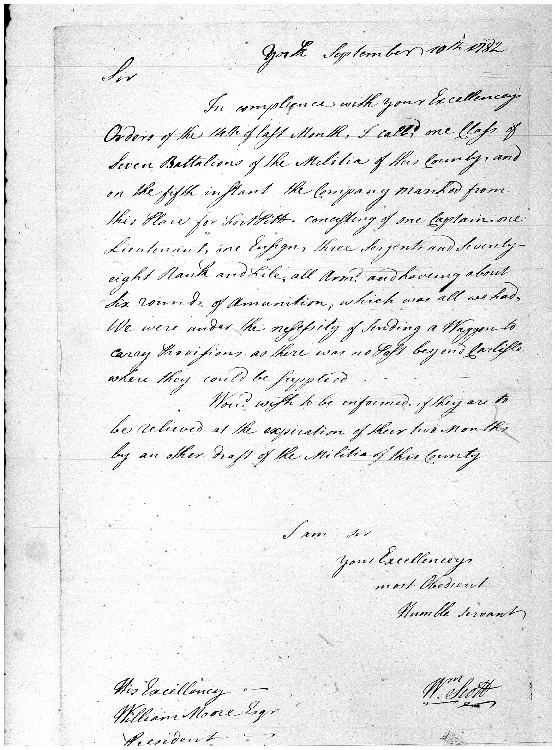 York September 10th 1782
Sir
In compliance with your Excellencys
Orders of the 14th of last Month, I call'd one Class of
Seven Battalions of the Militia of this County, and
on the fifth instant the Company marched from
this Place for Fort Pitt. consisting of one Captain, one
Lieutenant, one Ensign, three Sergents and Seventy-
eight Rank and File, all Armd. and having about
Six rounds of Amunition, which was all we had,
We were under the necessity of Sending a Waggon to
carry Provisions as there was no Post beyond Carlisle
where they could be Supplied
Woud. wish to be informed, if they are to
be relieved at the expiration of their two Months
by an other draft of the Militia of this County
I am Sir
your Excellencys
most Obedient
Humble Servant
Wm. Scott
His Excellency
William Moore Esqr
President